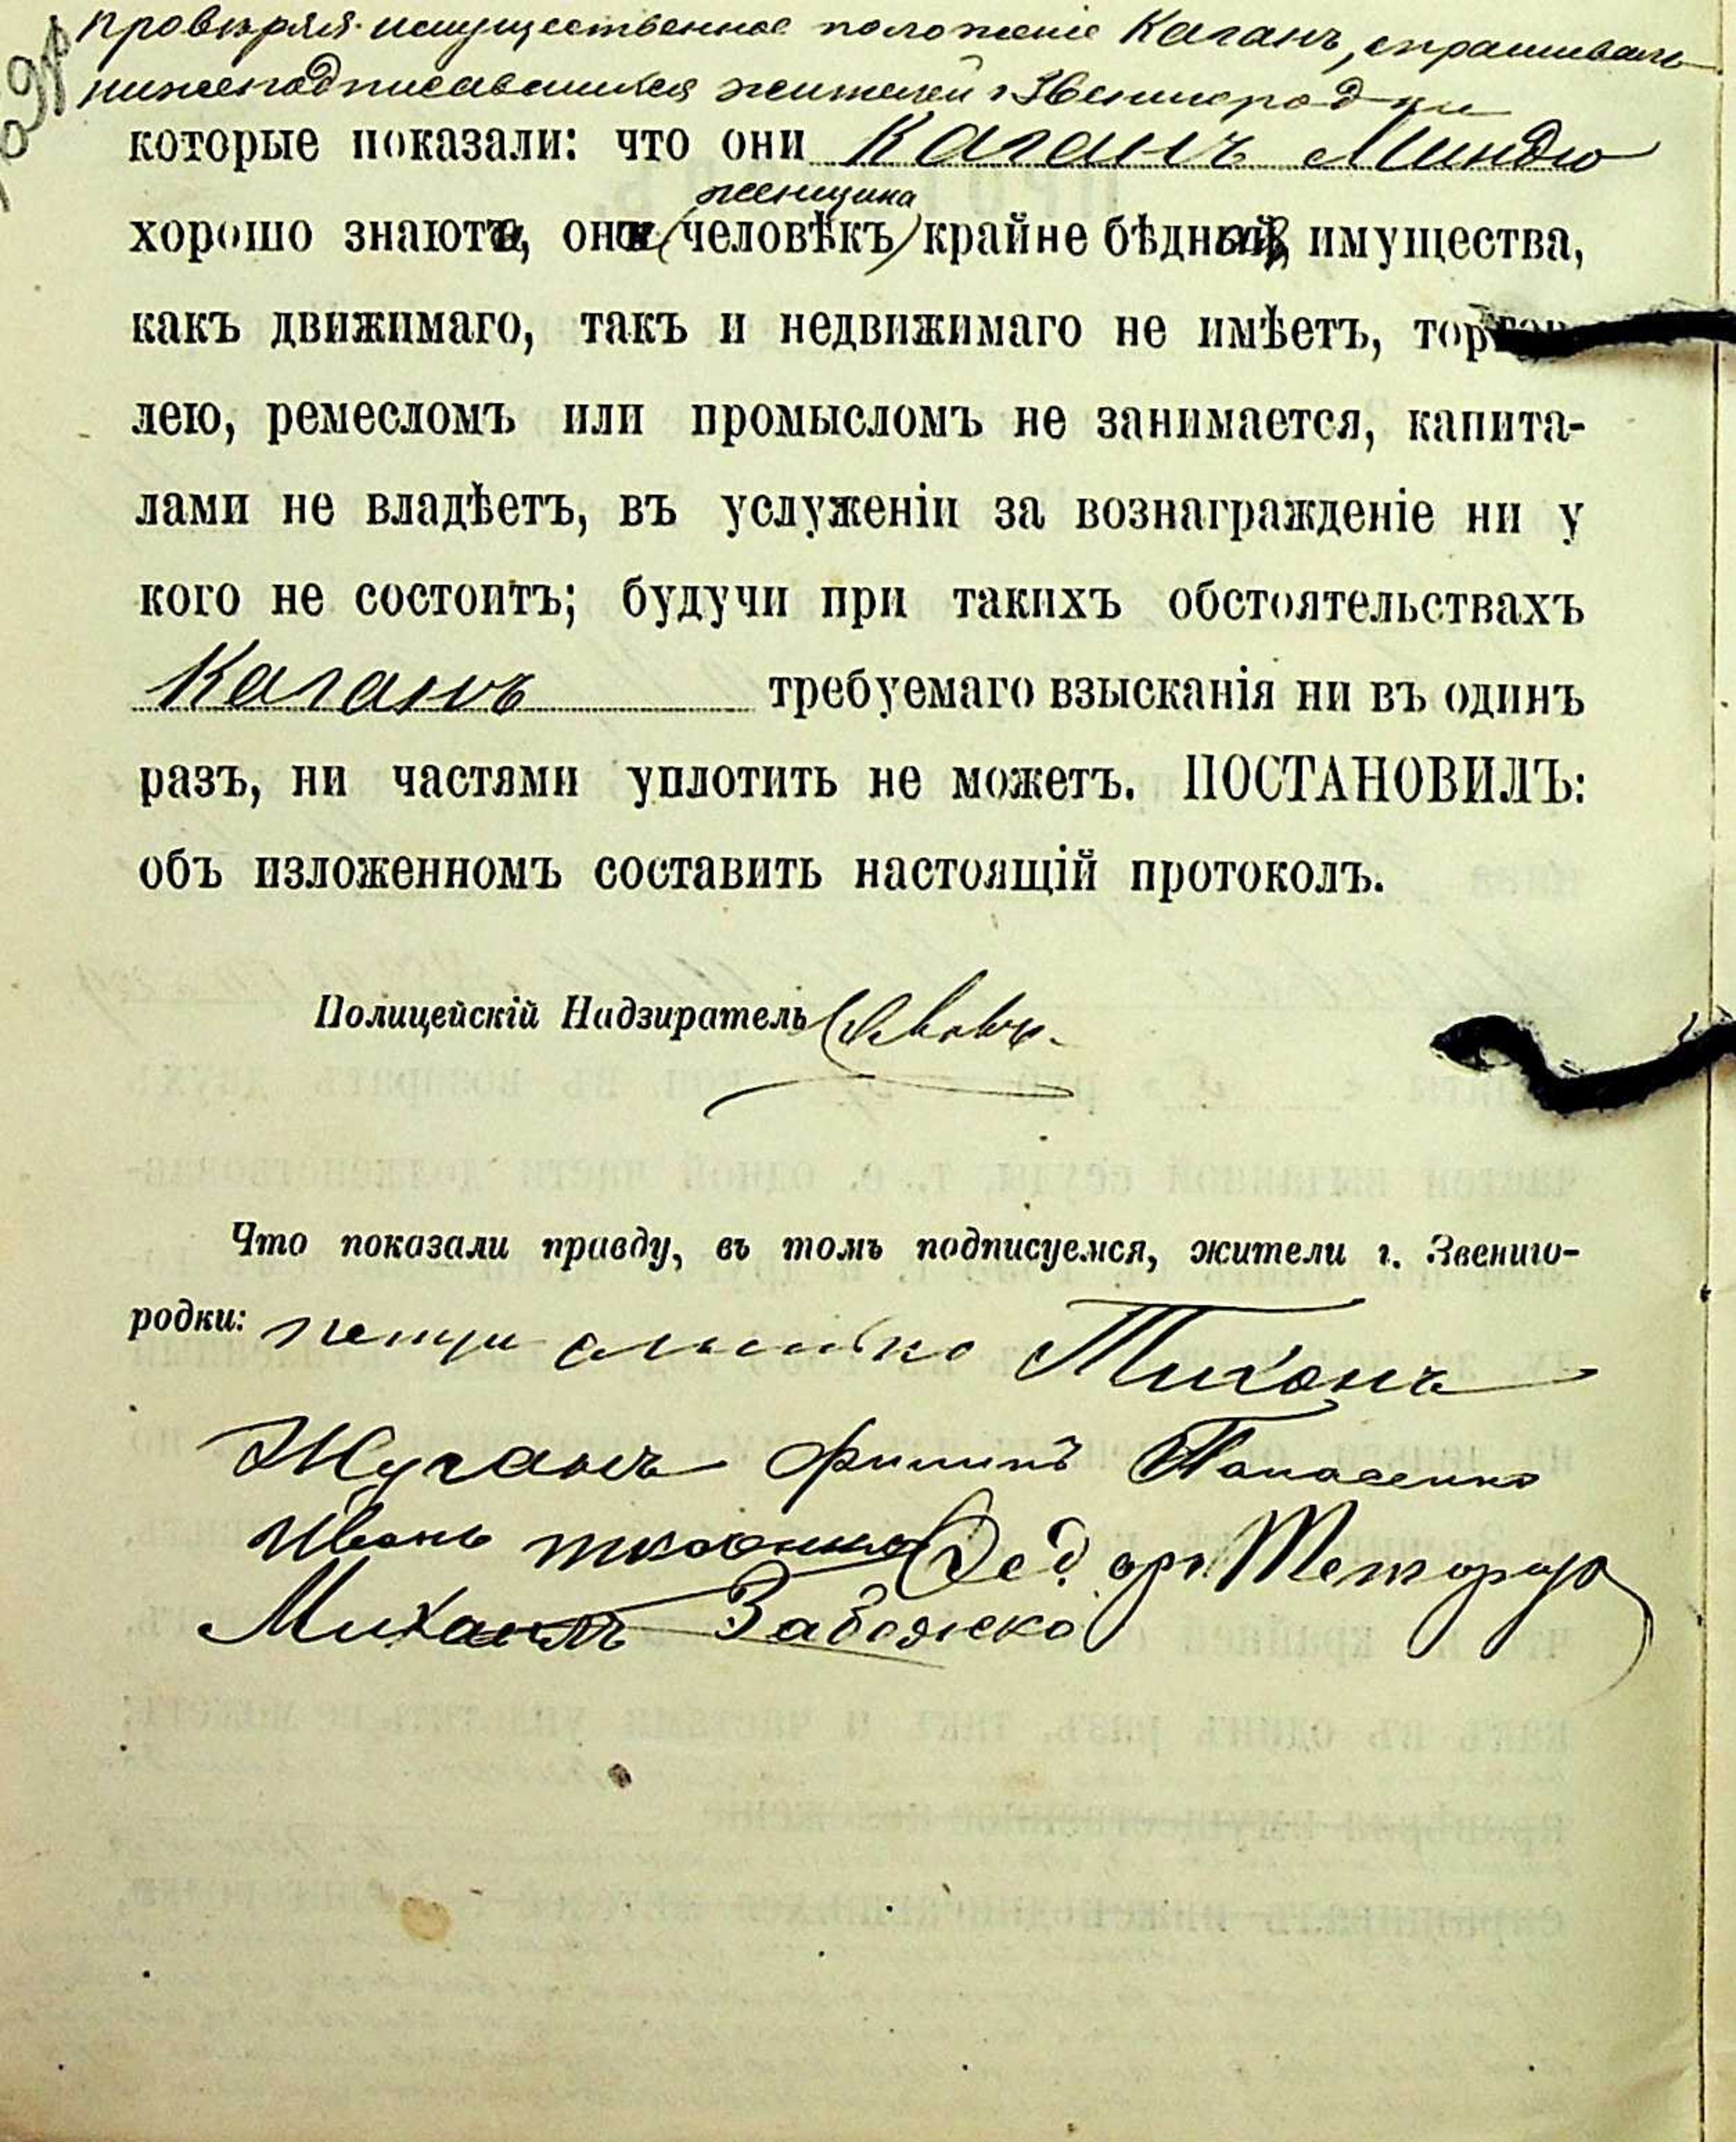 провѣряя имущественное положеніе Каганъ, спрашивалъ
нижеподписавшихся жителей г. Звенигородки
которые показали: что они Каганъ Миндю
женщина
хорошо знаютъ, она (человѣкъ) крайне бѣдная, имущества,
какъ движимаго, такъ и недвижимаго не имѣетъ, торгов-
лею, ремесломъ или промысломъ не занимается, капита-
лами не владѣетъ, въ услуженіи за вознагражденіе ни у
кого не состоитъ; будучи при такихъ обстоятельствахъ
Каганъ требуемаго взысканія ни въ одинъ
разъ, ни частями уплотить не можетъ. ПОСТАНОВИЛЪ:
объ изложенномъ составить настоящій протоколъ.
Полицейскій Надзиратель
Что показали правду, въ томъ подписуемся, жители г. Звениго-
родки: Тихонъ
Жуганъ Филипъ Панасенко
Иванъ Ткаченко Федоръ
Михаилъ